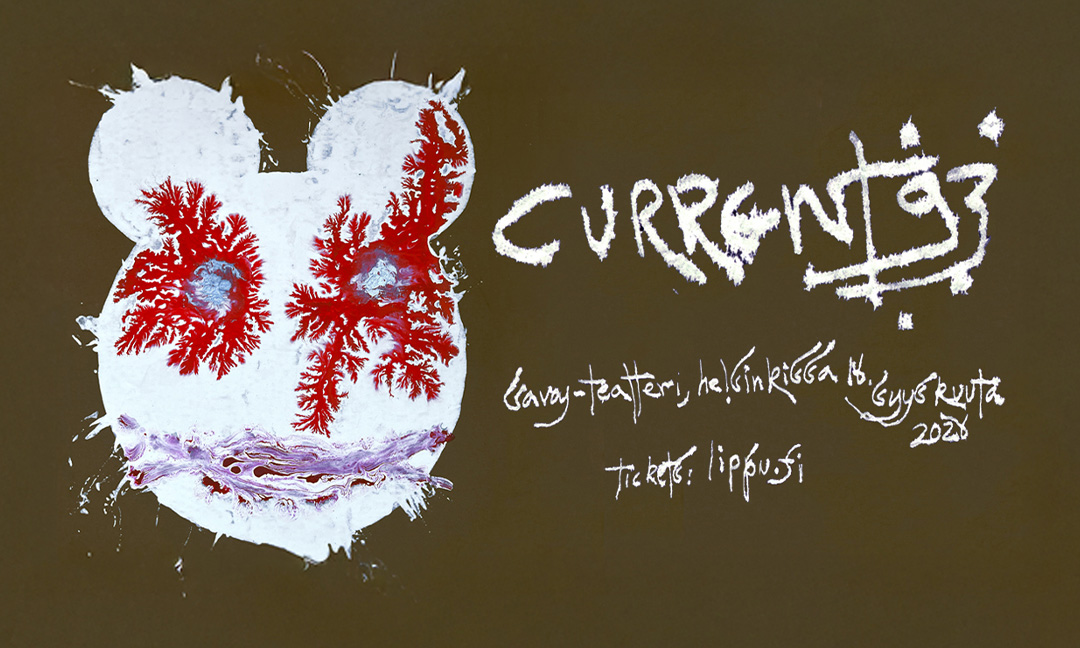 CURRENT 93
savoy-teatteri, helsinkissa 16. syyskuuta
2026
tickets: lippu.fi